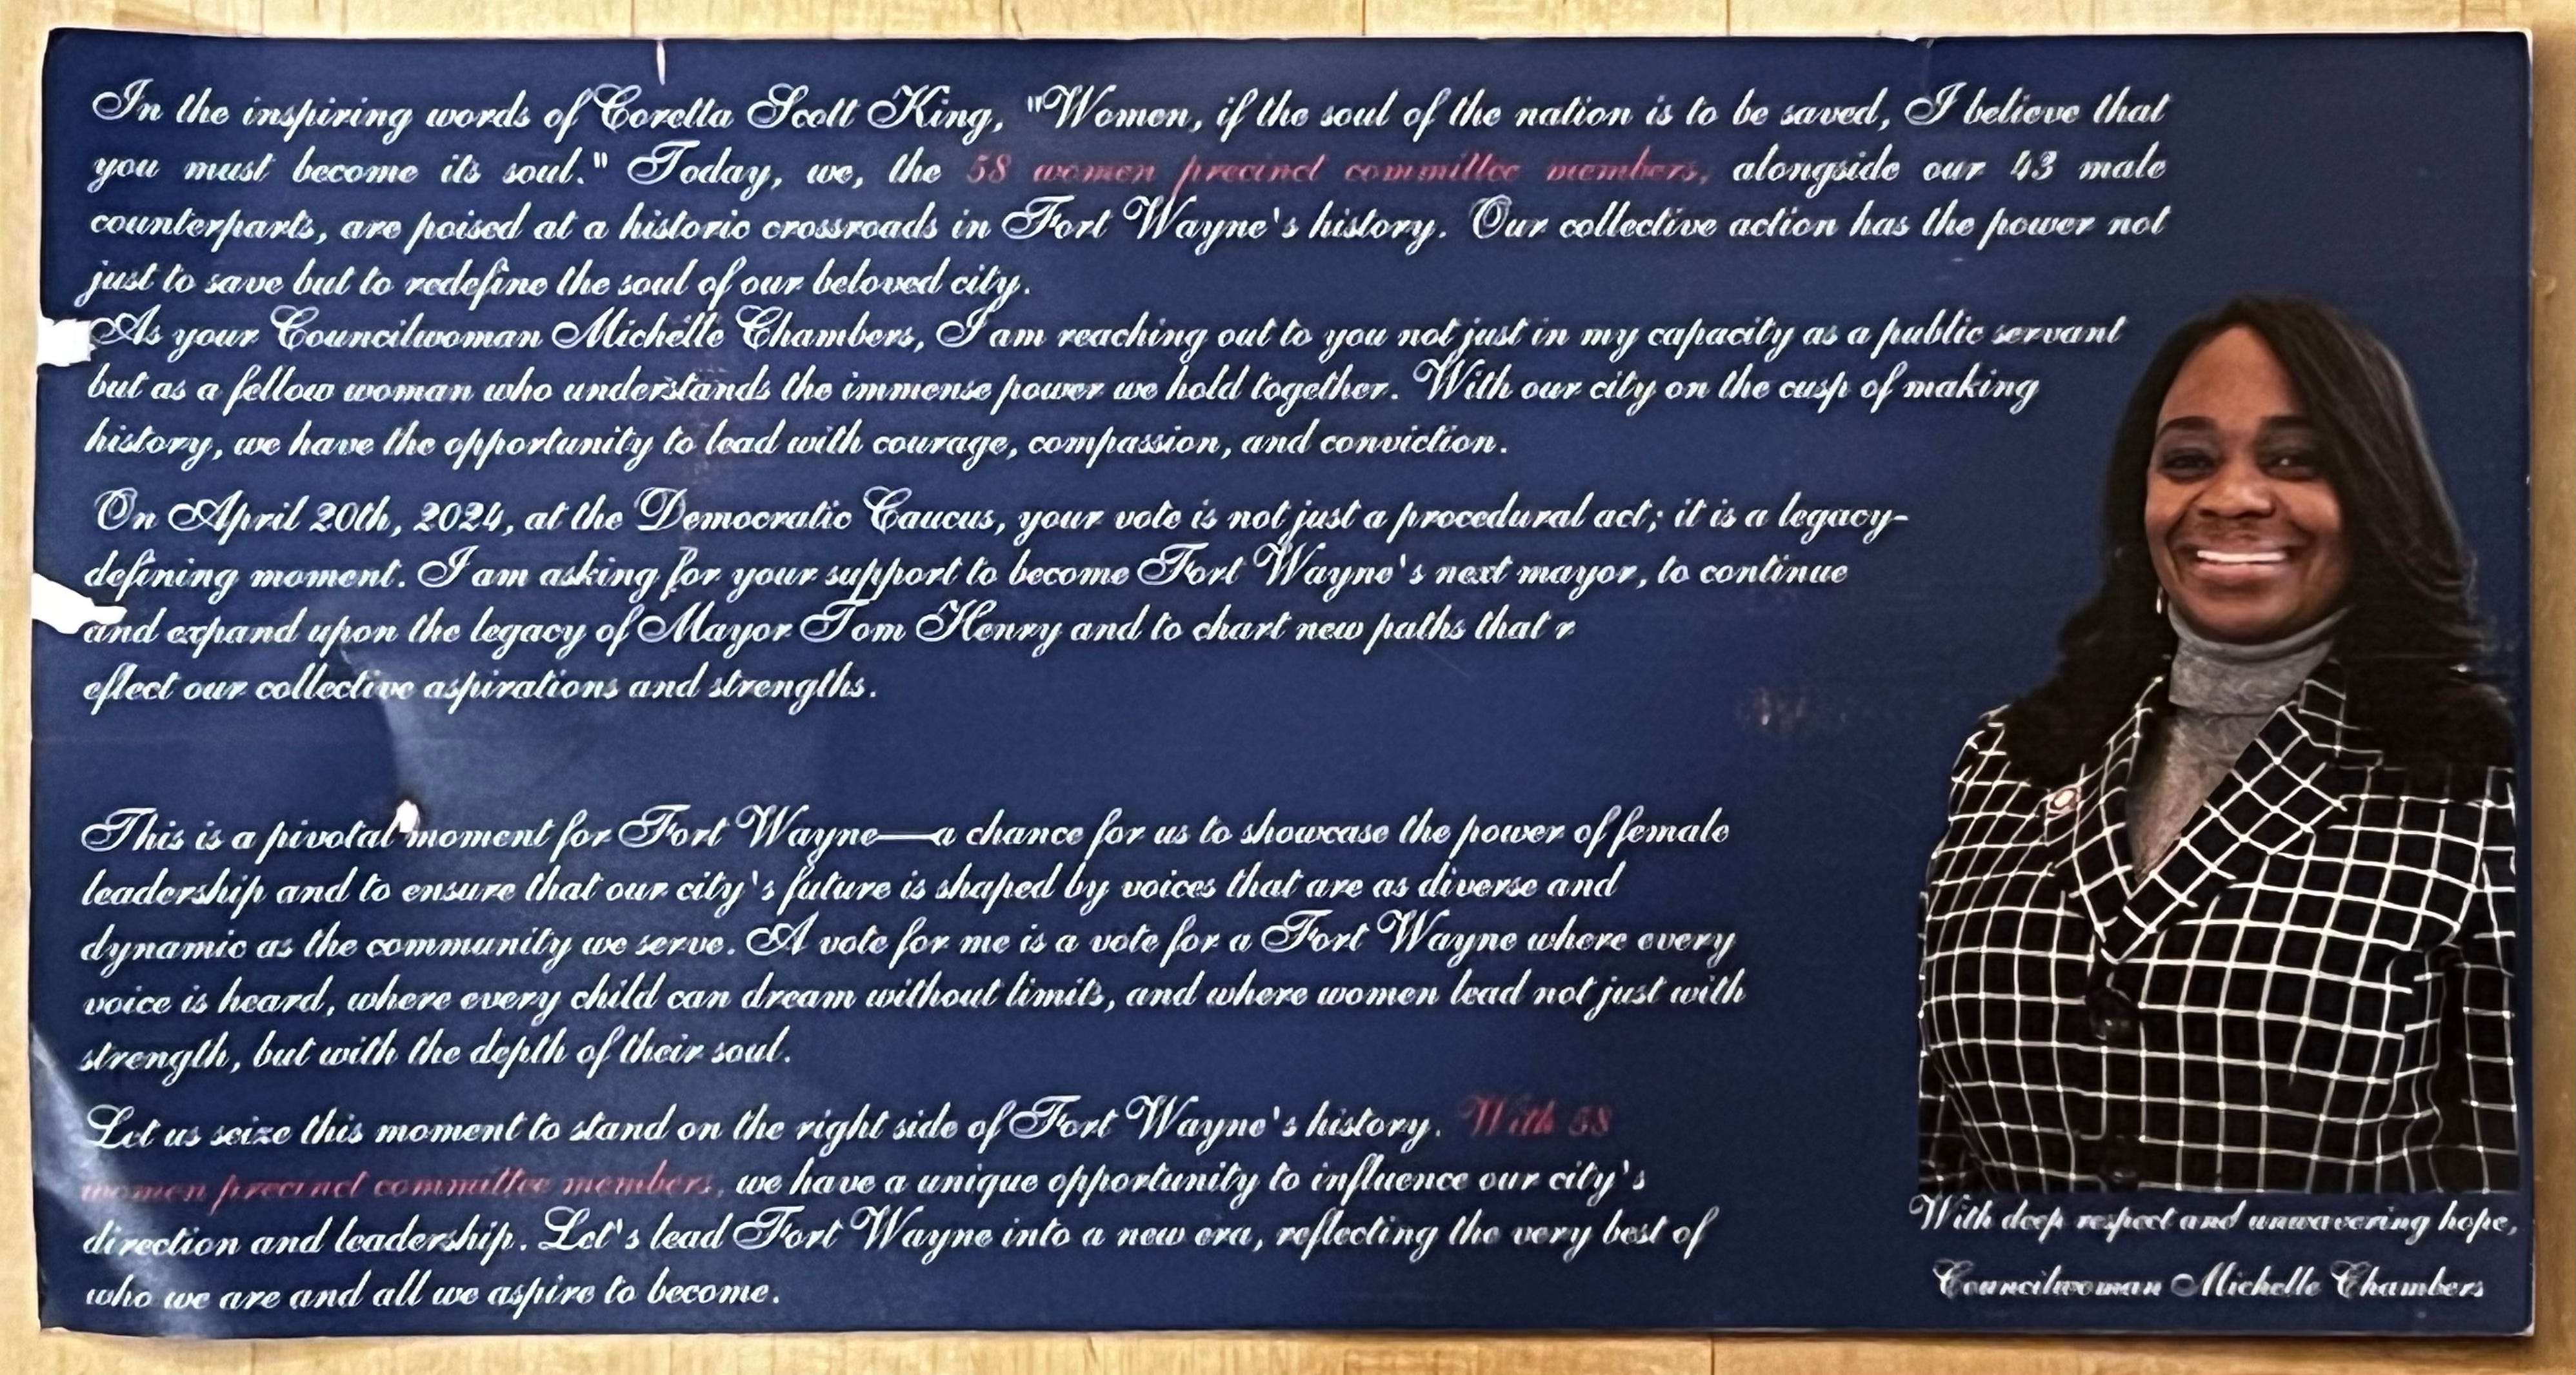 In the inspiring words of Coretta Scott King, "Women, if the soul of the nation is to be saved, I believe that
you must become its soul." Today, we, the 58 women precinct committee members, alongside our 43 male
counterparts, are poised at a historic crossroads in Fort Wayne's history. Our collective action has the power not
just to save but to redefine the soul of our beloved city.
As your Councilwoman Michelle Chambers, I am reaching out to you not just in my capacity as a public servant
but as a fellow woman who understands the immense power we hold together. With our city on the cusp of making
history, we have the opportunity to lead with courage, compassion, and conviction.
On April 20th, 2024, at the Democratic Caucus, your vote is not just a procedural act; it is a legacy-
defining moment. I am asking for your support to become Fort Wayne's next mayor, to continue
and expand upon the legacy of Mayor Tom Henry and to chart new paths that r
eflect our collective aspirations and strengths.
This is a pivotal moment for Fort Wayne—a chance for us to showcase the power of female
leadership and to ensure that our city's future is shaped by voices that are as diverse and
dynamic as the community we serve. A vote for me is a vote for a Fort Wayne where every
voice is heard, where every child can dream without limits, and where women lead not just with
strength, but with the depth of their soul.
Let us seize this moment to stand on the right side of Fort Wayne's history. With 58
women precinct committee members, we have a unique opportunity to influence our city's
direction and leadership. Let's lead Fort Wayne into a new era, reflecting the very best of
who we are and all we aspire to become.
With deep respect and unwavering hope,
Councilwoman Michelle Chambers